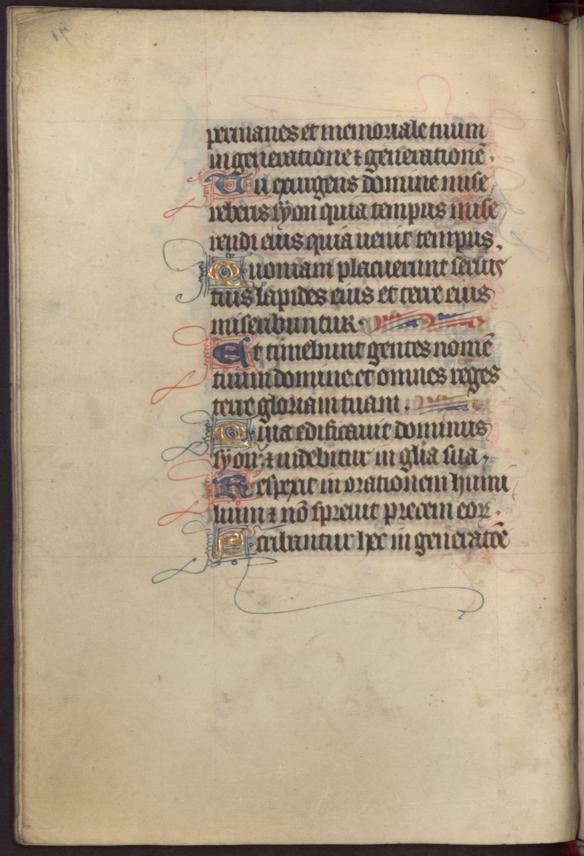 permanes et memoriale tuum
in generatione ⁊ generationē.
Tu exurgens domine mise
reberis syon quia tempus mise
rendi eius quia uenit tempus.
Quoniam placuerunt seruis
tuis lapides eius et terre eius
miserebuntur.
Et timebunt gentes nomē
tuum domine et omnes reges
terre gloriam tuam.
Quia edificauit dominus
syon: ⁊ uidebitur in glīa sua.
Respexit in orationem humi
lium ⁊ nō spreuit precem eoꝝ.
Scribantur hec in generatōe